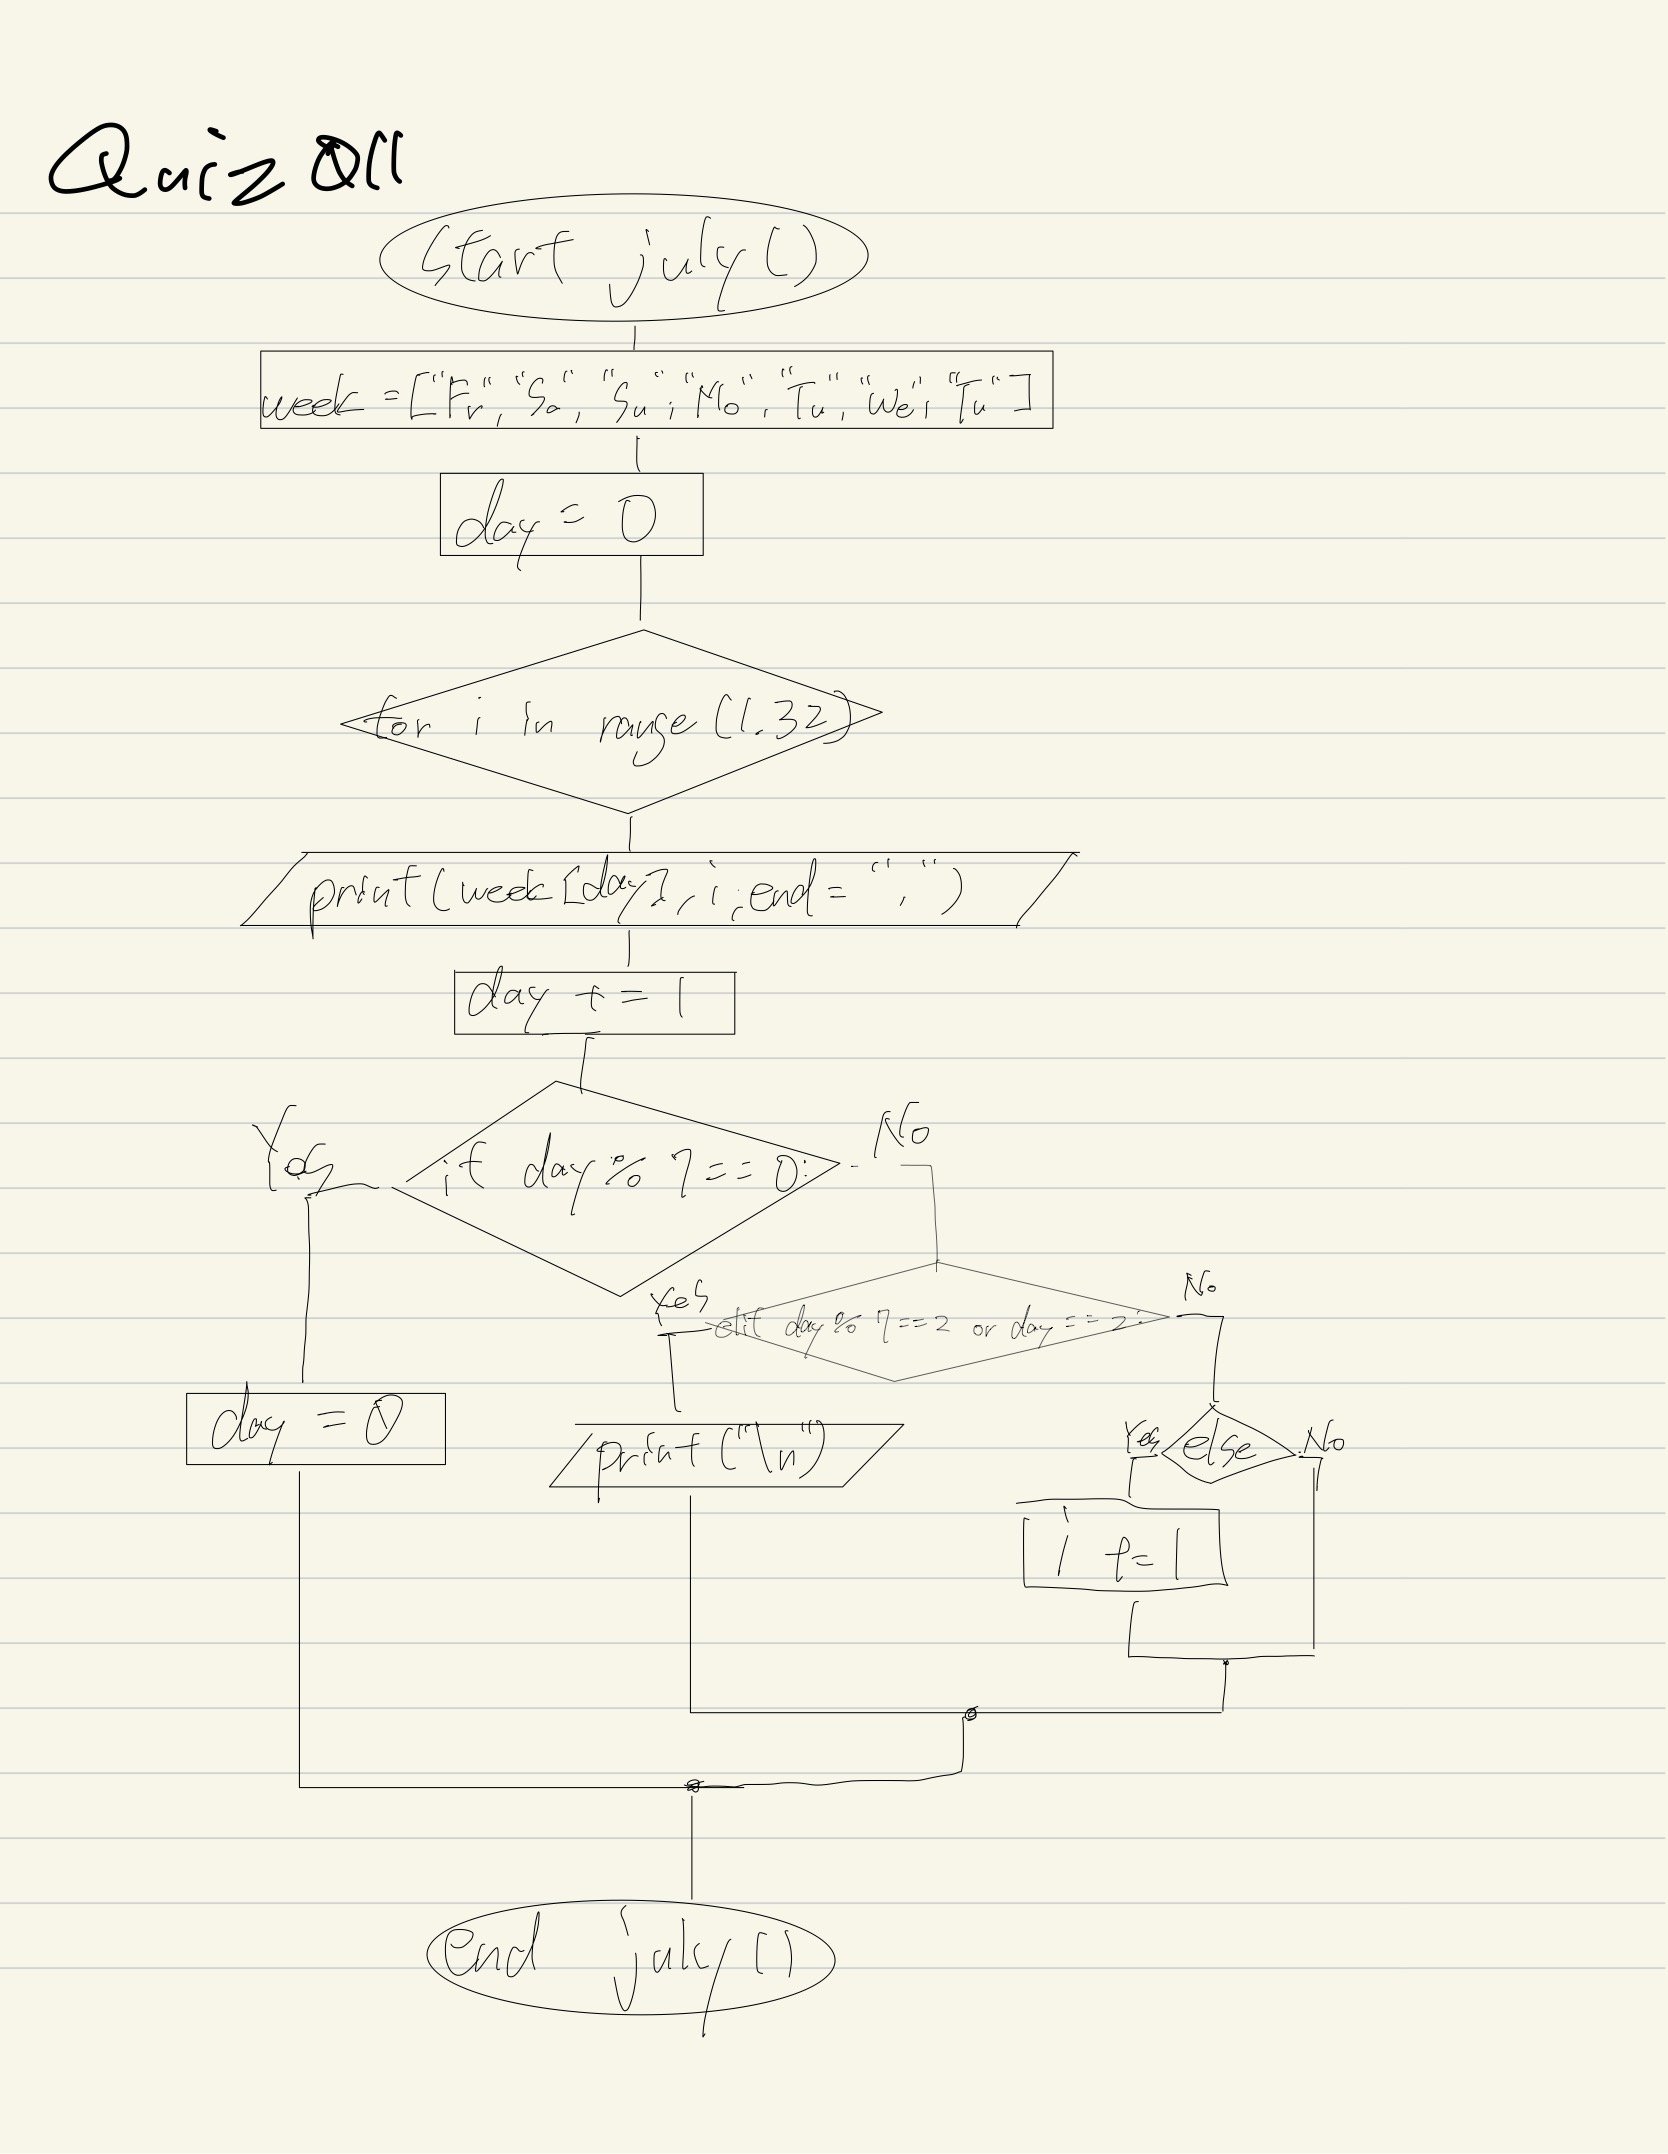 Quiz 011
start july()
week = ["Fr", "Sa", "Su", "Mo", "Tu", "We", "Tu"]
day = 0
for i in range (1.32)
print(week[day], i, end = ", ")
day += 1
Yes
if day % 7 == 0:
No
Yes
elif day % 7 == 2 or day == 2:
No
day = 0
print("\n")
Yes
else
No
i += 1
end july()